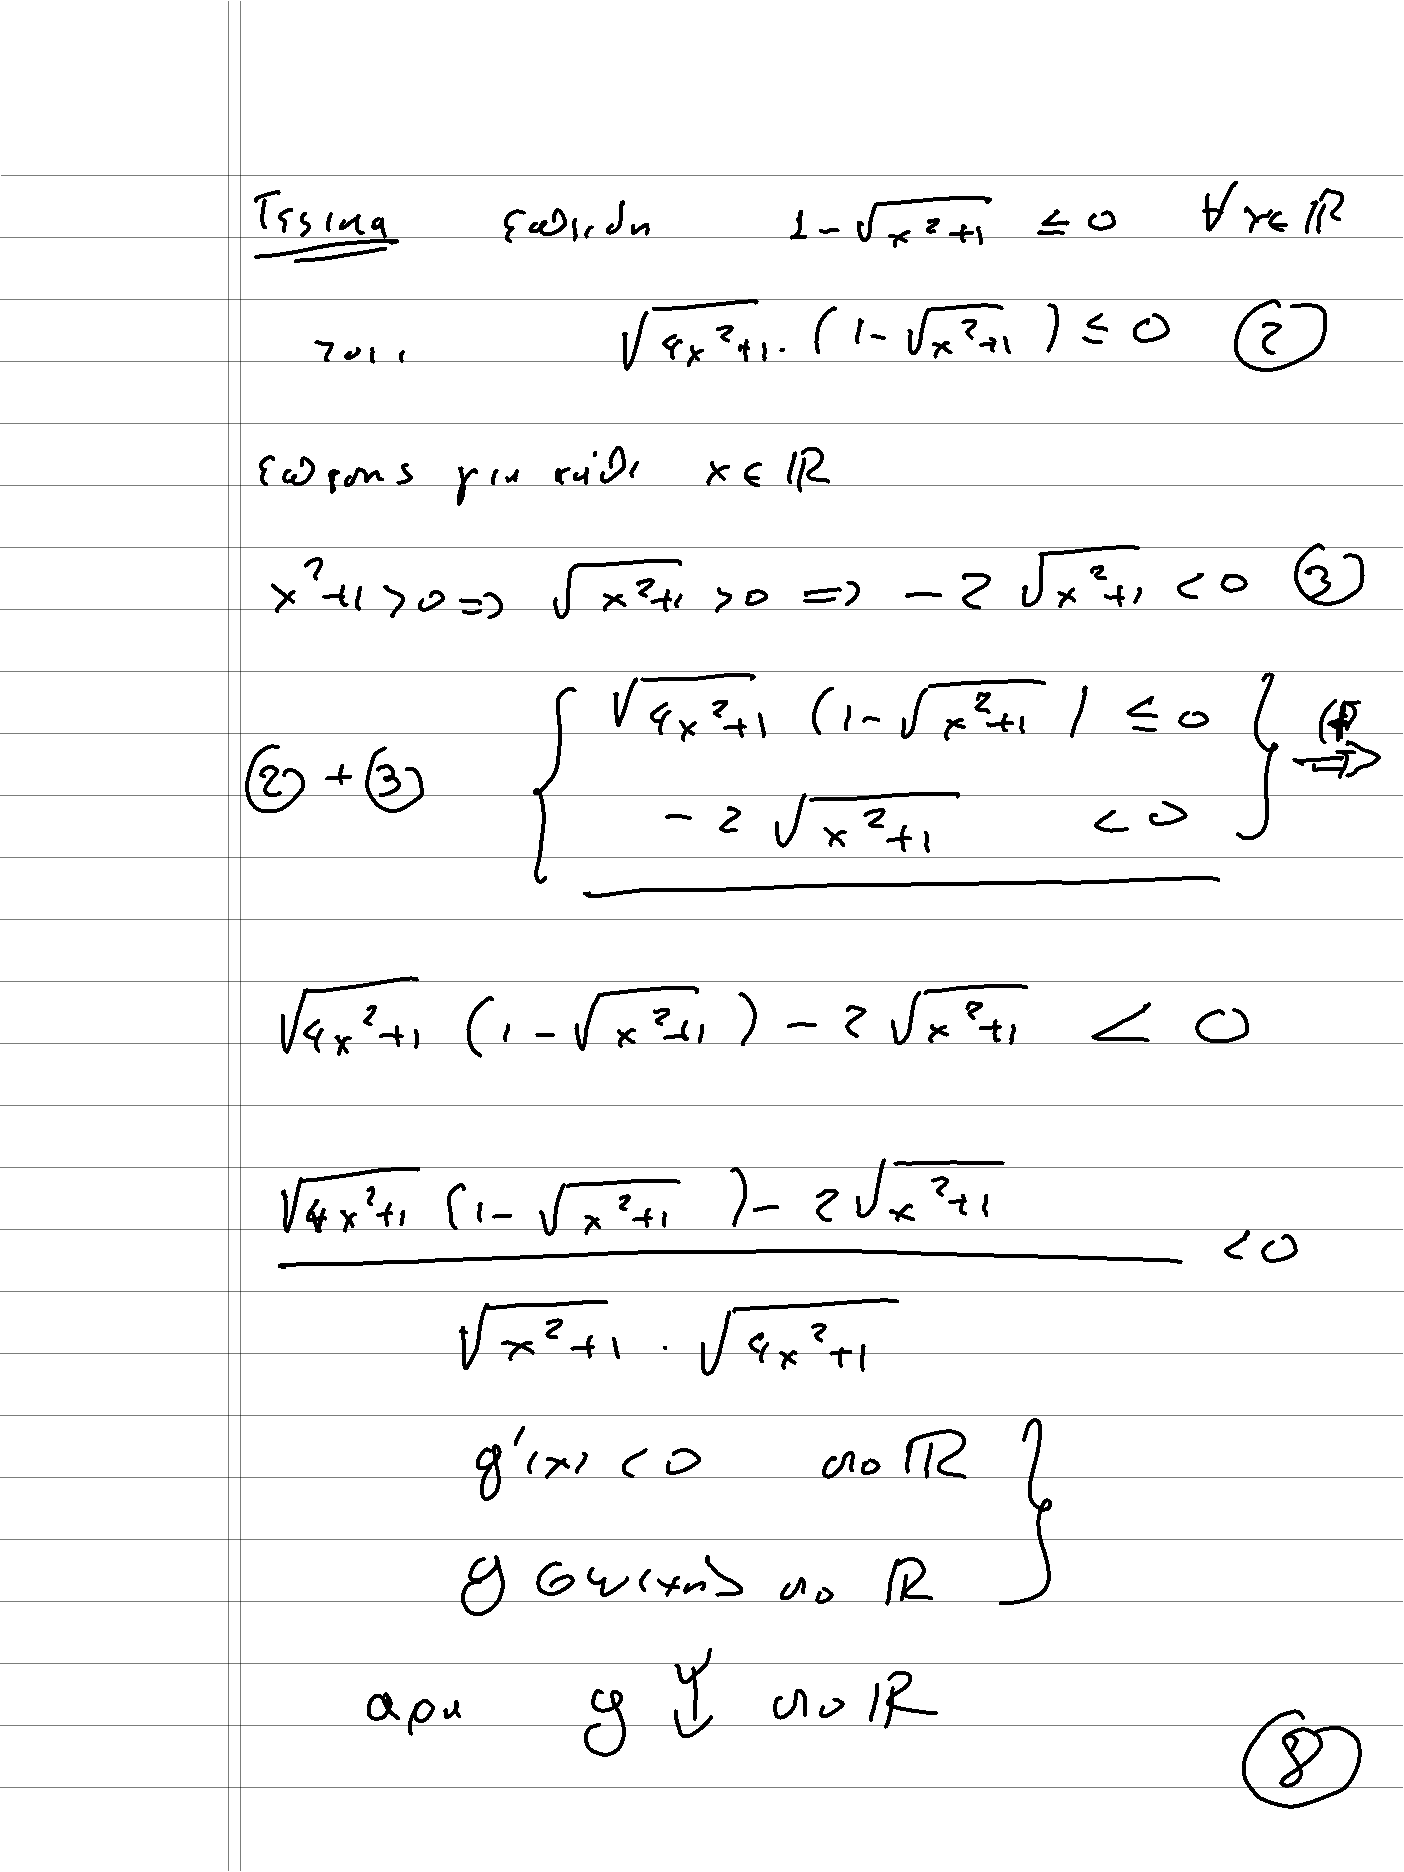 Τελικα επειδη 1-√(x²+1) ≤ 0 ∀ x∈ℝ
τοτε √(4x²+1) · (1-√(x²+1)) ≤ 0 ②
επισης για κάθε x ∈ ℝ
x²+1>0 => √(x²+1) >0 => -2 √(x²+1) <0 ③
√(4x²+1) (1-√(x²+1)) ≤ 0 (+) ⇒
② + ③
-2 √(x²+1) <0
√(4x²+1) (1-√(x²+1)) - 2√(x²+1) < 0
√(4x²+1) (1-√(x²+1)) - 2√(x²+1)
<0
√(x²+1) · √(4x²+1)
g'(x) <0 στο ℝ
g συνεχης στο ℝ
αρα g ↓ στο ℝ
⑧